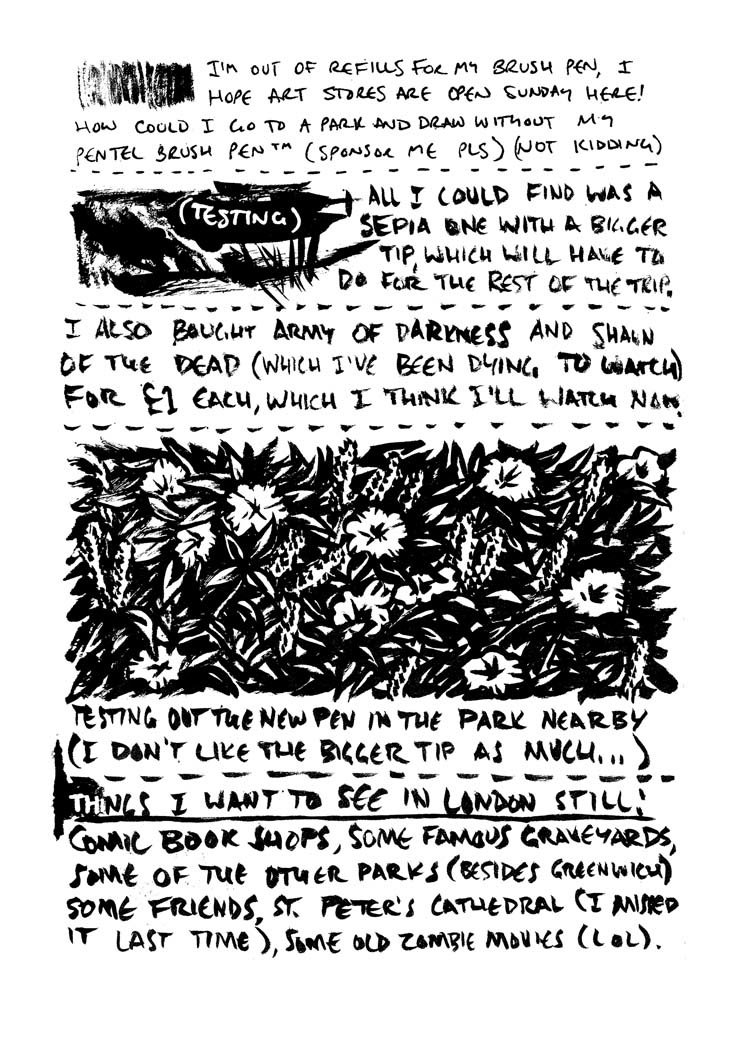 I'M OUT OF REFILLS FOR MY BRUSH PEN, I
HOPE ART STORES ARE OPEN SUNDAY HERE!
HOW COULD I GO TO A PARK AND DRAW WITHOUT MY
PENTEL BRUSH PEN™ (SPONSOR ME PLS) (NOT KIDDING)
(TESTING)
ALL I COULD FIND WAS A
SEPIA ONE WITH A BIGGER
TIP, WHICH WILL HAVE TO
DO FOR THE REST OF THE TRIP.
I ALSO BOUGHT ARMY OF DARKNESS AND SHAUN
OF THE DEAD (WHICH I'VE BEEN DYING TO WATCH)
FOR £1 EACH, WHICH I THINK I'LL WATCH NOW.
TESTING OUT THE NEW PEN IN THE PARK NEARBY
(I DON'T LIKE THE BIGGER TIP AS MUCH...)
THINGS I WANT TO SEE IN LONDON STILL:
COMIC BOOK SHOPS, SOME FAMOUS GRAVEYARDS,
SOME OF THE OTHER PARKS (BESIDES GREENWICH)
SOME FRIENDS, ST. PETER'S CATHEDRAL (I MISSED
IT LAST TIME), SOME OLD ZOMBIE MOVIES (LOL).